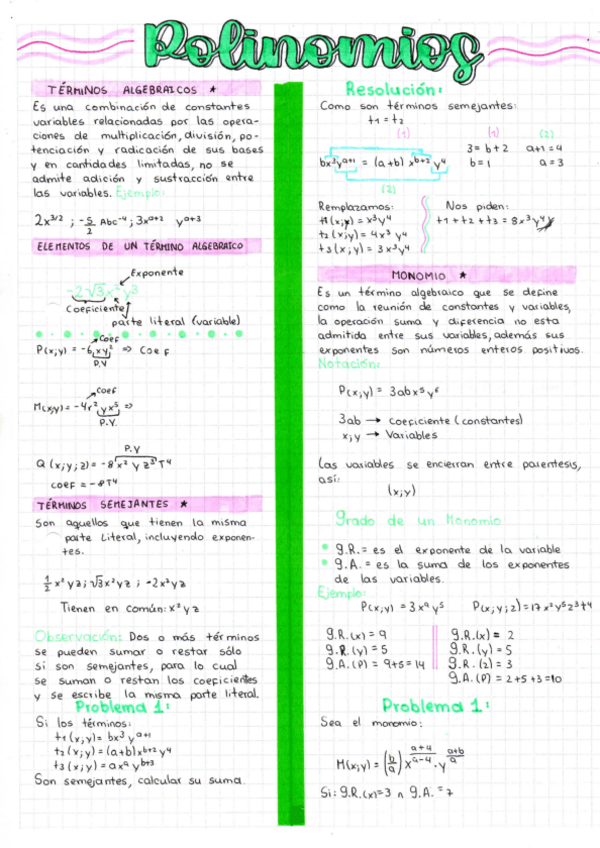 Polinomios
TÉRMINOS ALGEBRAICOS ★
Es una combinación de constantes
variables relacionadas por las opera-
ciones de multiplicación, división, po-
tenciación y radicación de sus bases
y en cantidades limitadas, no se
admite adición y sustracción entre
las variables. Ejemplo:
2x^3/2 ; -5/2 Abc^-4 ; 3x^a+2 y^a+3
ELEMENTOS DE UN TÉRMINO ALGEBRAICO
Exponente
-2√3x y³
Coeficiente
parte literal (variable)
Coef
P(x;y) = -6 xy² => Coef
P.V
Coef
M(x;y) = -4r² yx⁵ =>
P.V.
P.V
Q (x;y;z) = -8 x² y z³ T⁴
coef = -8T⁴
TÉRMINOS SEMEJANTES ★
Son aquellos que tienen la misma
parte Literal, incluyendo exponen-
tes.
1/2 x²yz ; √3x²yz ; -2x²yz
Tienen en común: x²yz
Observación: Dos o más términos
se pueden sumar o restar sólo
si son semejantes, para lo cual
se suman o restan los coeficientes
y se escribe la misma parte literal.
Problema 1:
Si los términos:
t1 (x;y) = bx³ y^a+1
t2 (x;y) = (a+b) x^b+2 y⁴
t3 (x;y) = ax^a y^b+3
Son semejantes, calcular su suma.
Resolución:
Como son términos semejantes:
t1 = t2
(1) (1) (2)
3 = b+2 a+1 = 4
bx³y^a+1 = (a+b) x^b+2 y⁴ b = 1 a = 3
(2)
Remplazamos: Nos piden:
t1 (x;y) = x³y⁴ t1 + t2 + t3 = 8x³y⁴
t2 (x;y) = 4x³ y⁴
t3 (x;y) = 3x³y⁴
MONOMIO ★
Es un término algebraico que se define
como la reunión de constantes y variables,
la operación suma y diferencia no esta
admitida entre sus variables, además sus
exponentes son números enteros positivos.
Notación:
P(x;y) = 3abx⁵y⁶
3ab → Coeficiente (constantes)
x;y → Variables
Las variables se encierran entre parentesis,
así:
(x;y)
Grado de un Monomio
G.R. = es el exponente de la variable
G.A. = es la suma de los exponentes
de las variables.
Ejemplo:
P(x;y) = 3x⁹y⁵ P(x;y;z) = 17x²y⁵z³t⁴
G.R. (x) = 9 G.R. (x) = 2
G.R. (y) = 5 G.R. (y) = 5
G.A. (P) = 9+5 = 14 G.R. (z) = 3
G.A. (P) = 2+5+3 = 10
Problema 1:
Sea el monomio:
M(x;y) = (b/a) x^a+4/a-4 · y^a+b/a
Si: G.R. (x) = 3 ∧ G.A. = 7